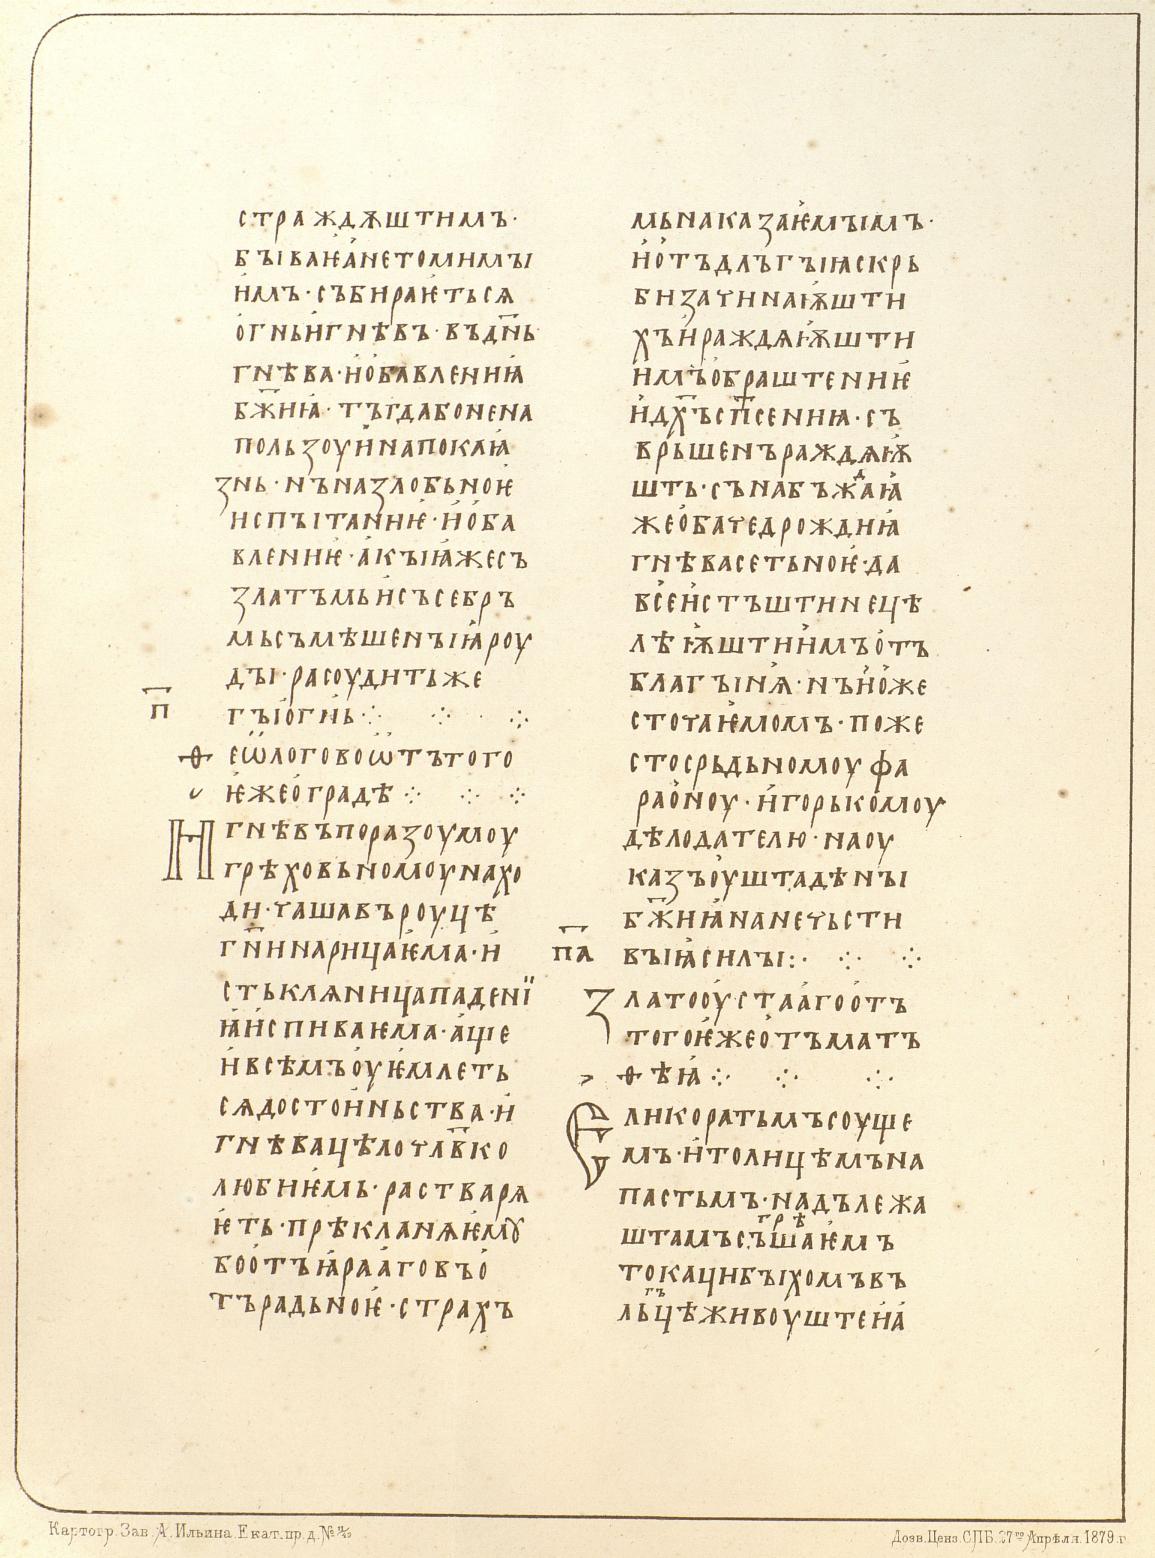 страждѫштимъ·
бываѥанетомимы
имъ·събираѥтьсѧ
огньигнѣвъ·въдн҃ь
гнѣва·иобавлениꙗ
бж҃иꙗ·тъгдабонена
пользоуинапокаꙗ
знь·нъназлобьноѥ
испытаниѥ·иоба
влениѥ·акыꙗжесъ
златъмьисъсебръ
мьсъмѣшеныꙗроу
ды·расоудитьже
п҃ гыогнь⁘ ⁘ ⁘
ѳеѡлоговоѿтътого
ѥжеоградѣ⁘ ⁘ ⁘
И гнѣвъпоразоумоу
грѣховьномоунахо
ди·чашавъроуцѣ
гн҃инарицаѥма·и
стькланицападенї
ꙗиспиваѥма·аще
ивсѣмъоуѥмлеть
сѧдостоиньства·и
гнѣвацѣлочлв҃ко
любиѥмь·растварѧ
ѥть·прѣкланѧѥмꙋ
боотъꙗрааговъо
търадьноѥ·страхъ
мьнаказаѥмымъ·
иотъдлъгыꙗскрь
бизачинаѭшти
хъираждаѭшти
имъобраштениѥ
идх҃ъсп҃сениꙗ·съ
врьшенъраждаѭ
шть·сънабъждаꙗ
жеобачедрождиꙗ
гнѣвасетьноѥ·да
всеистъштинецѣ
лѣѭштиимъотъ
благынѧ·нъиоже
сточаѥмомъ·поже
стосрьдьномоуфа
раоноу·игорькомоу
дѣлодателю·наоу
казъоуштадѣны
бж҃иꙗнанечьсти
п҃а выꙗсилы:· ⁘ ⁘
Златооустааго отъ
тогоѥжеотъматъ
ѳѣꙗ⁘ ⁘ ⁘
Еликоратьмъсоуще
мъ·итолицѣмъна
пастьмъ·надълежа
штамъсъгрѣшаѥмъ
токацибыхомъвъ
льгъцѣживоуштеиа
Картогр. Зав. А. Ильина. Екат. пр. д. №
Дозв. Ценз. СПБ. 27го Апрѣля. 1879. г.